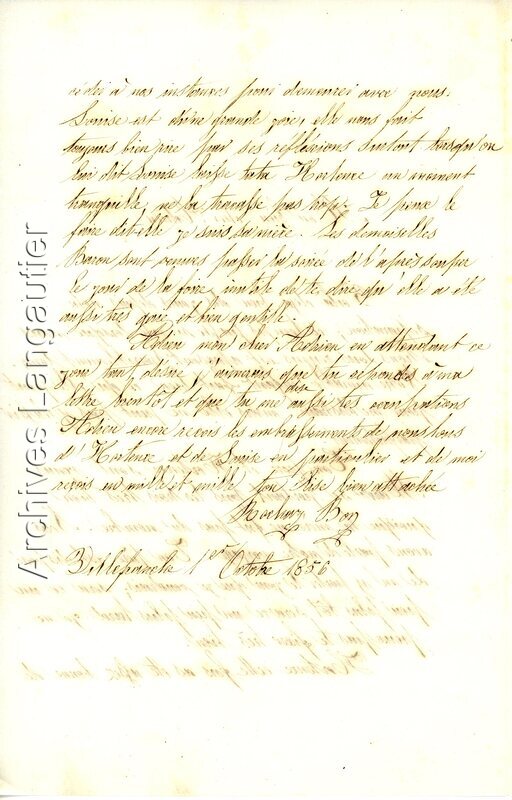 céder à nos instances pour demeurer avec nous.
Louise est d'une grande joie, elle nous fait
toujours bien rire par ses réflexions surtout lorsqu'on
lui dit Louise laisse tata Hortense un moment
tranquille, ne la tracasse pas trop. Je peux le
faire dit-elle je suis sa nièce. Les demoiselles
Baron sont venues passer la soirée de l'après souper
le jour de la foire, inutile de te dire qu'elle a été
aussi très gaie et bien gentille.
Adieu mon cher Adrien en attendant ce
jour tant désiré, j'aimerais que tu répondes à ma
lettre bientôt et que tu me dises aussi tes occupations
Adieu encore reçois les embrassements de nous tous
d'Hortense et de Louise en particulier et de moi
reçois en mille et mille ton bien attachée
Villefranche 1er Octobre 1856
Archives Langautier